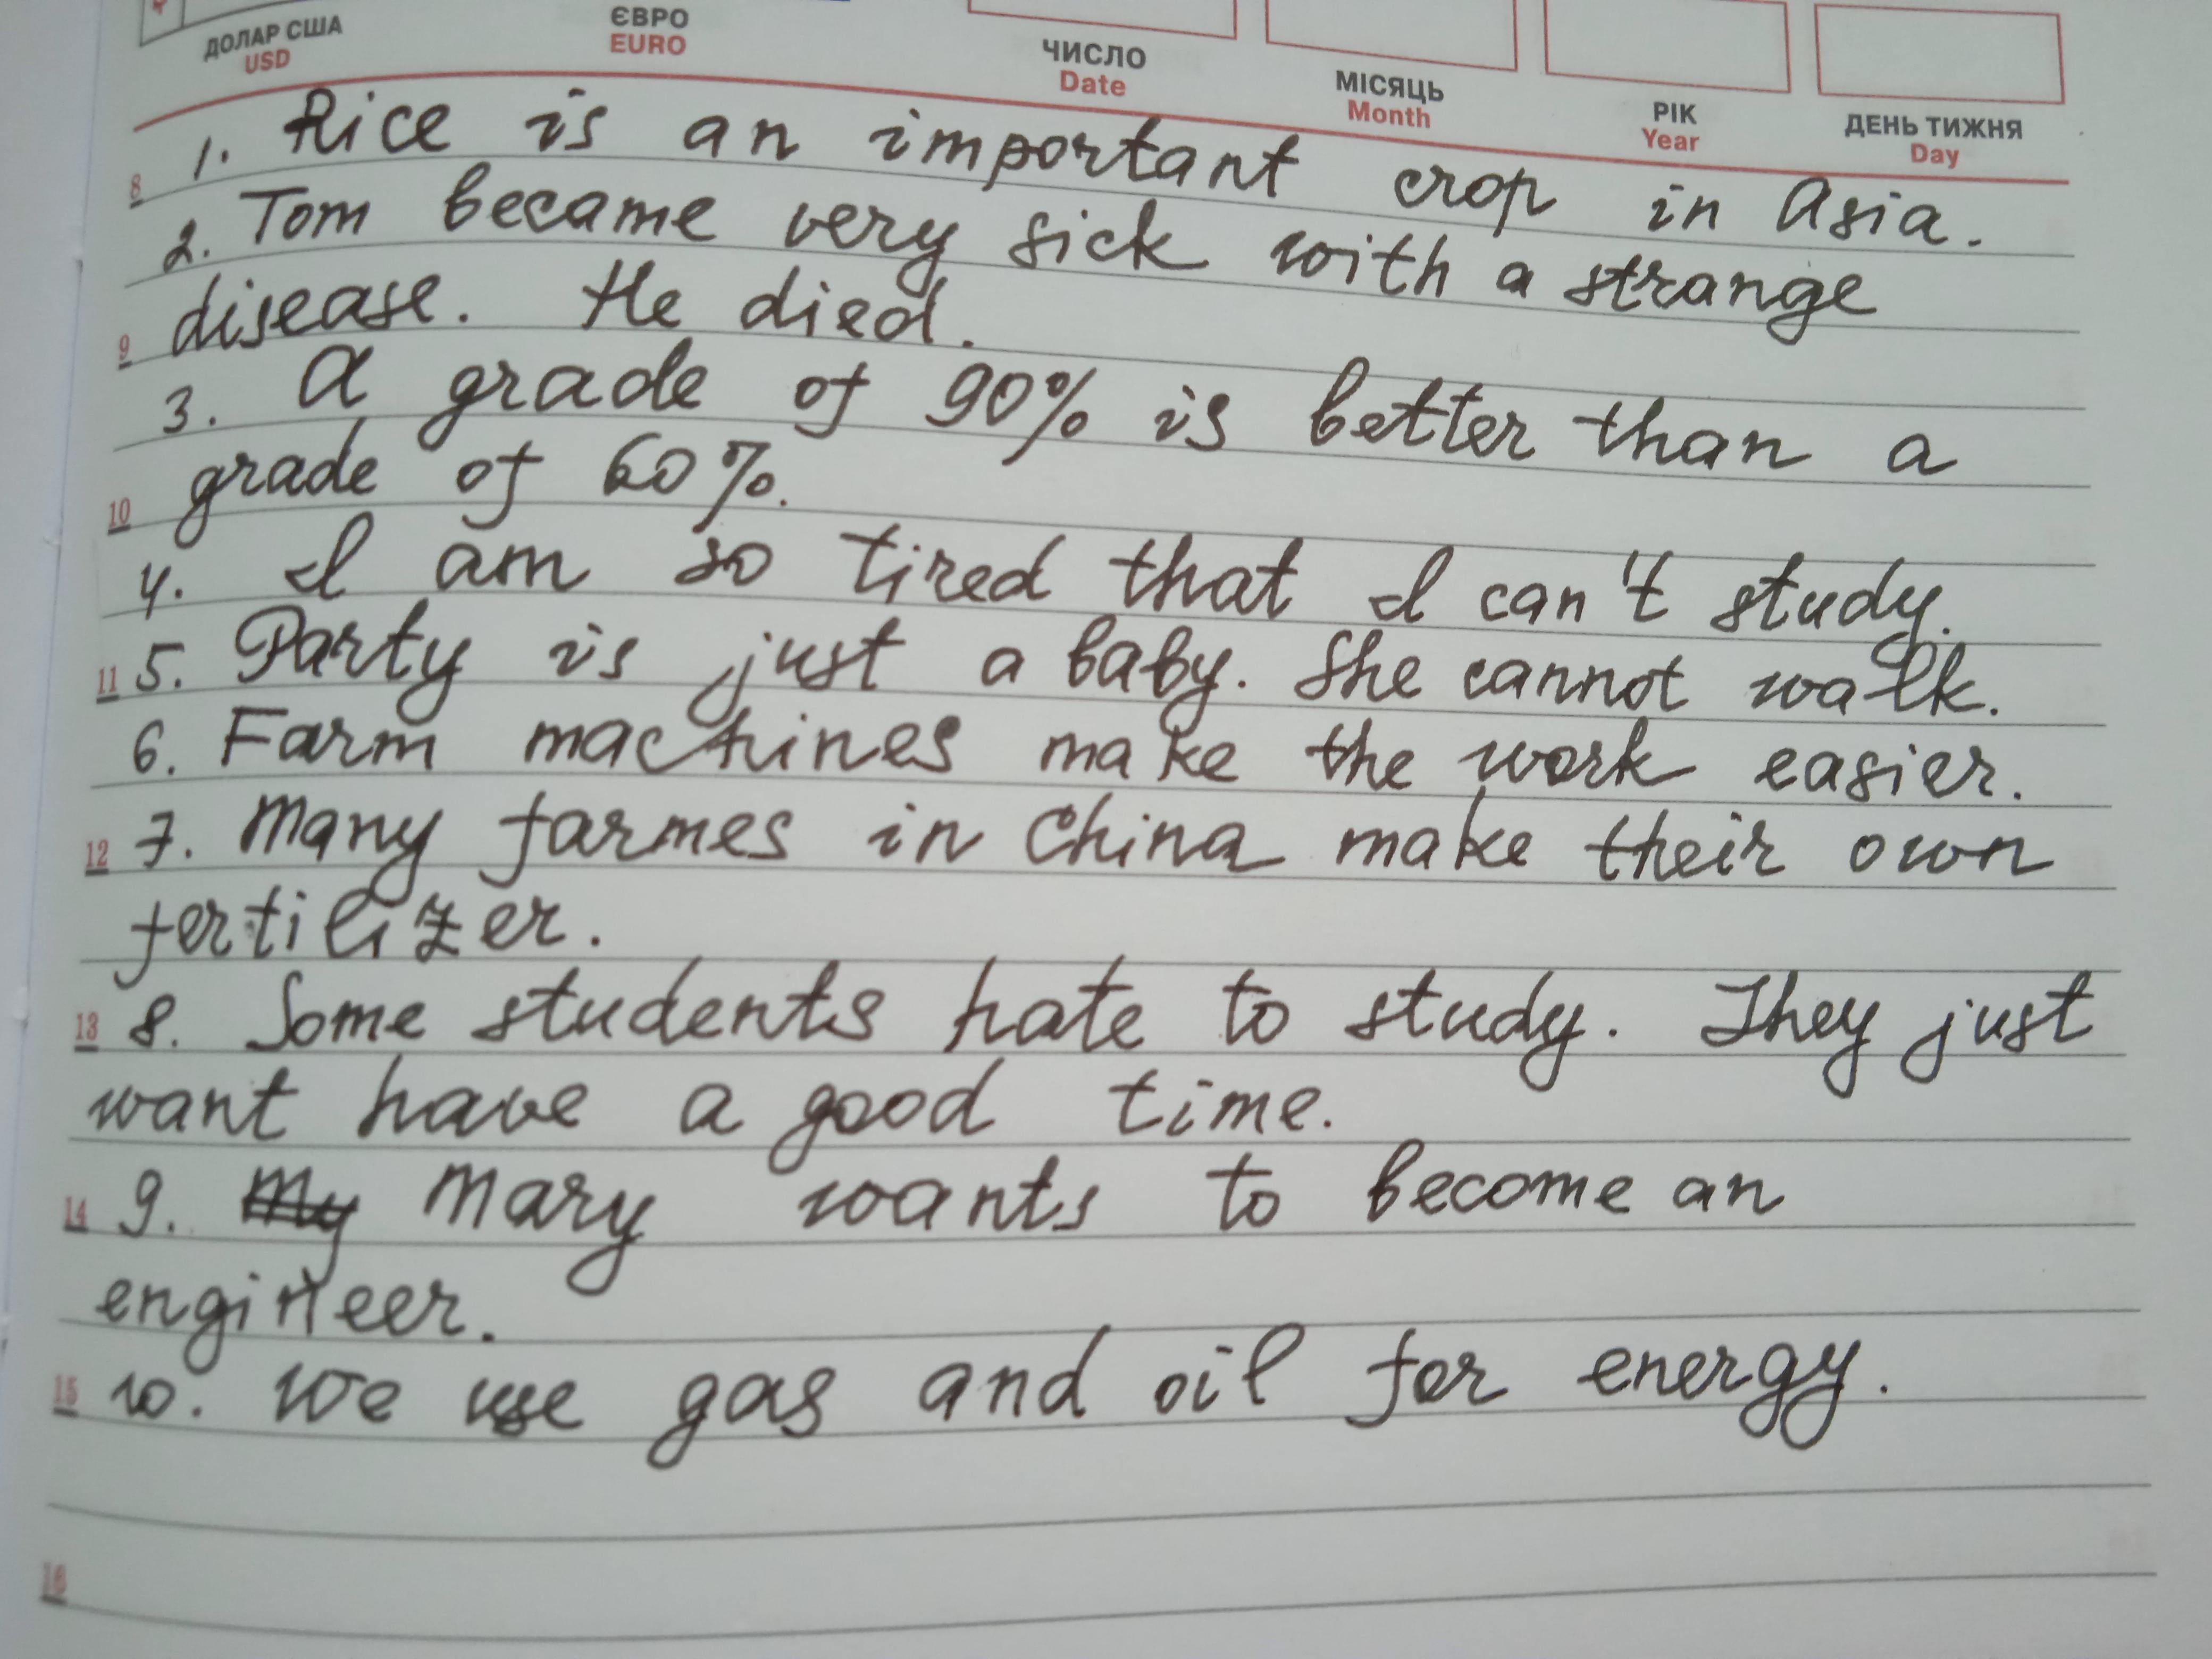 ДОЛАР США
USD
ЄВРО
EURO
ЧИСЛО
Date
МІСЯЦЬ
Month
РІК
Year
ДЕНЬ ТИЖНЯ
Day
1. Rice is an important crop in Asia.
8
2. Tom became very sick with a strange
9 disease. He died.
3. A grade of 90% is better than a
10 grade of 60%.
4. I am so tired that I can't study.
11 5. Party is just a baby. She cannot walk.
6. Farm machines make the work easier.
12 7. Many farmes in China make their own
fertilizer.
13 8. Some students hate to study. They just
want have a good time.
14 9. My Mary wants to become an
engineer.
15 10. We use gas and oil for energy.
16